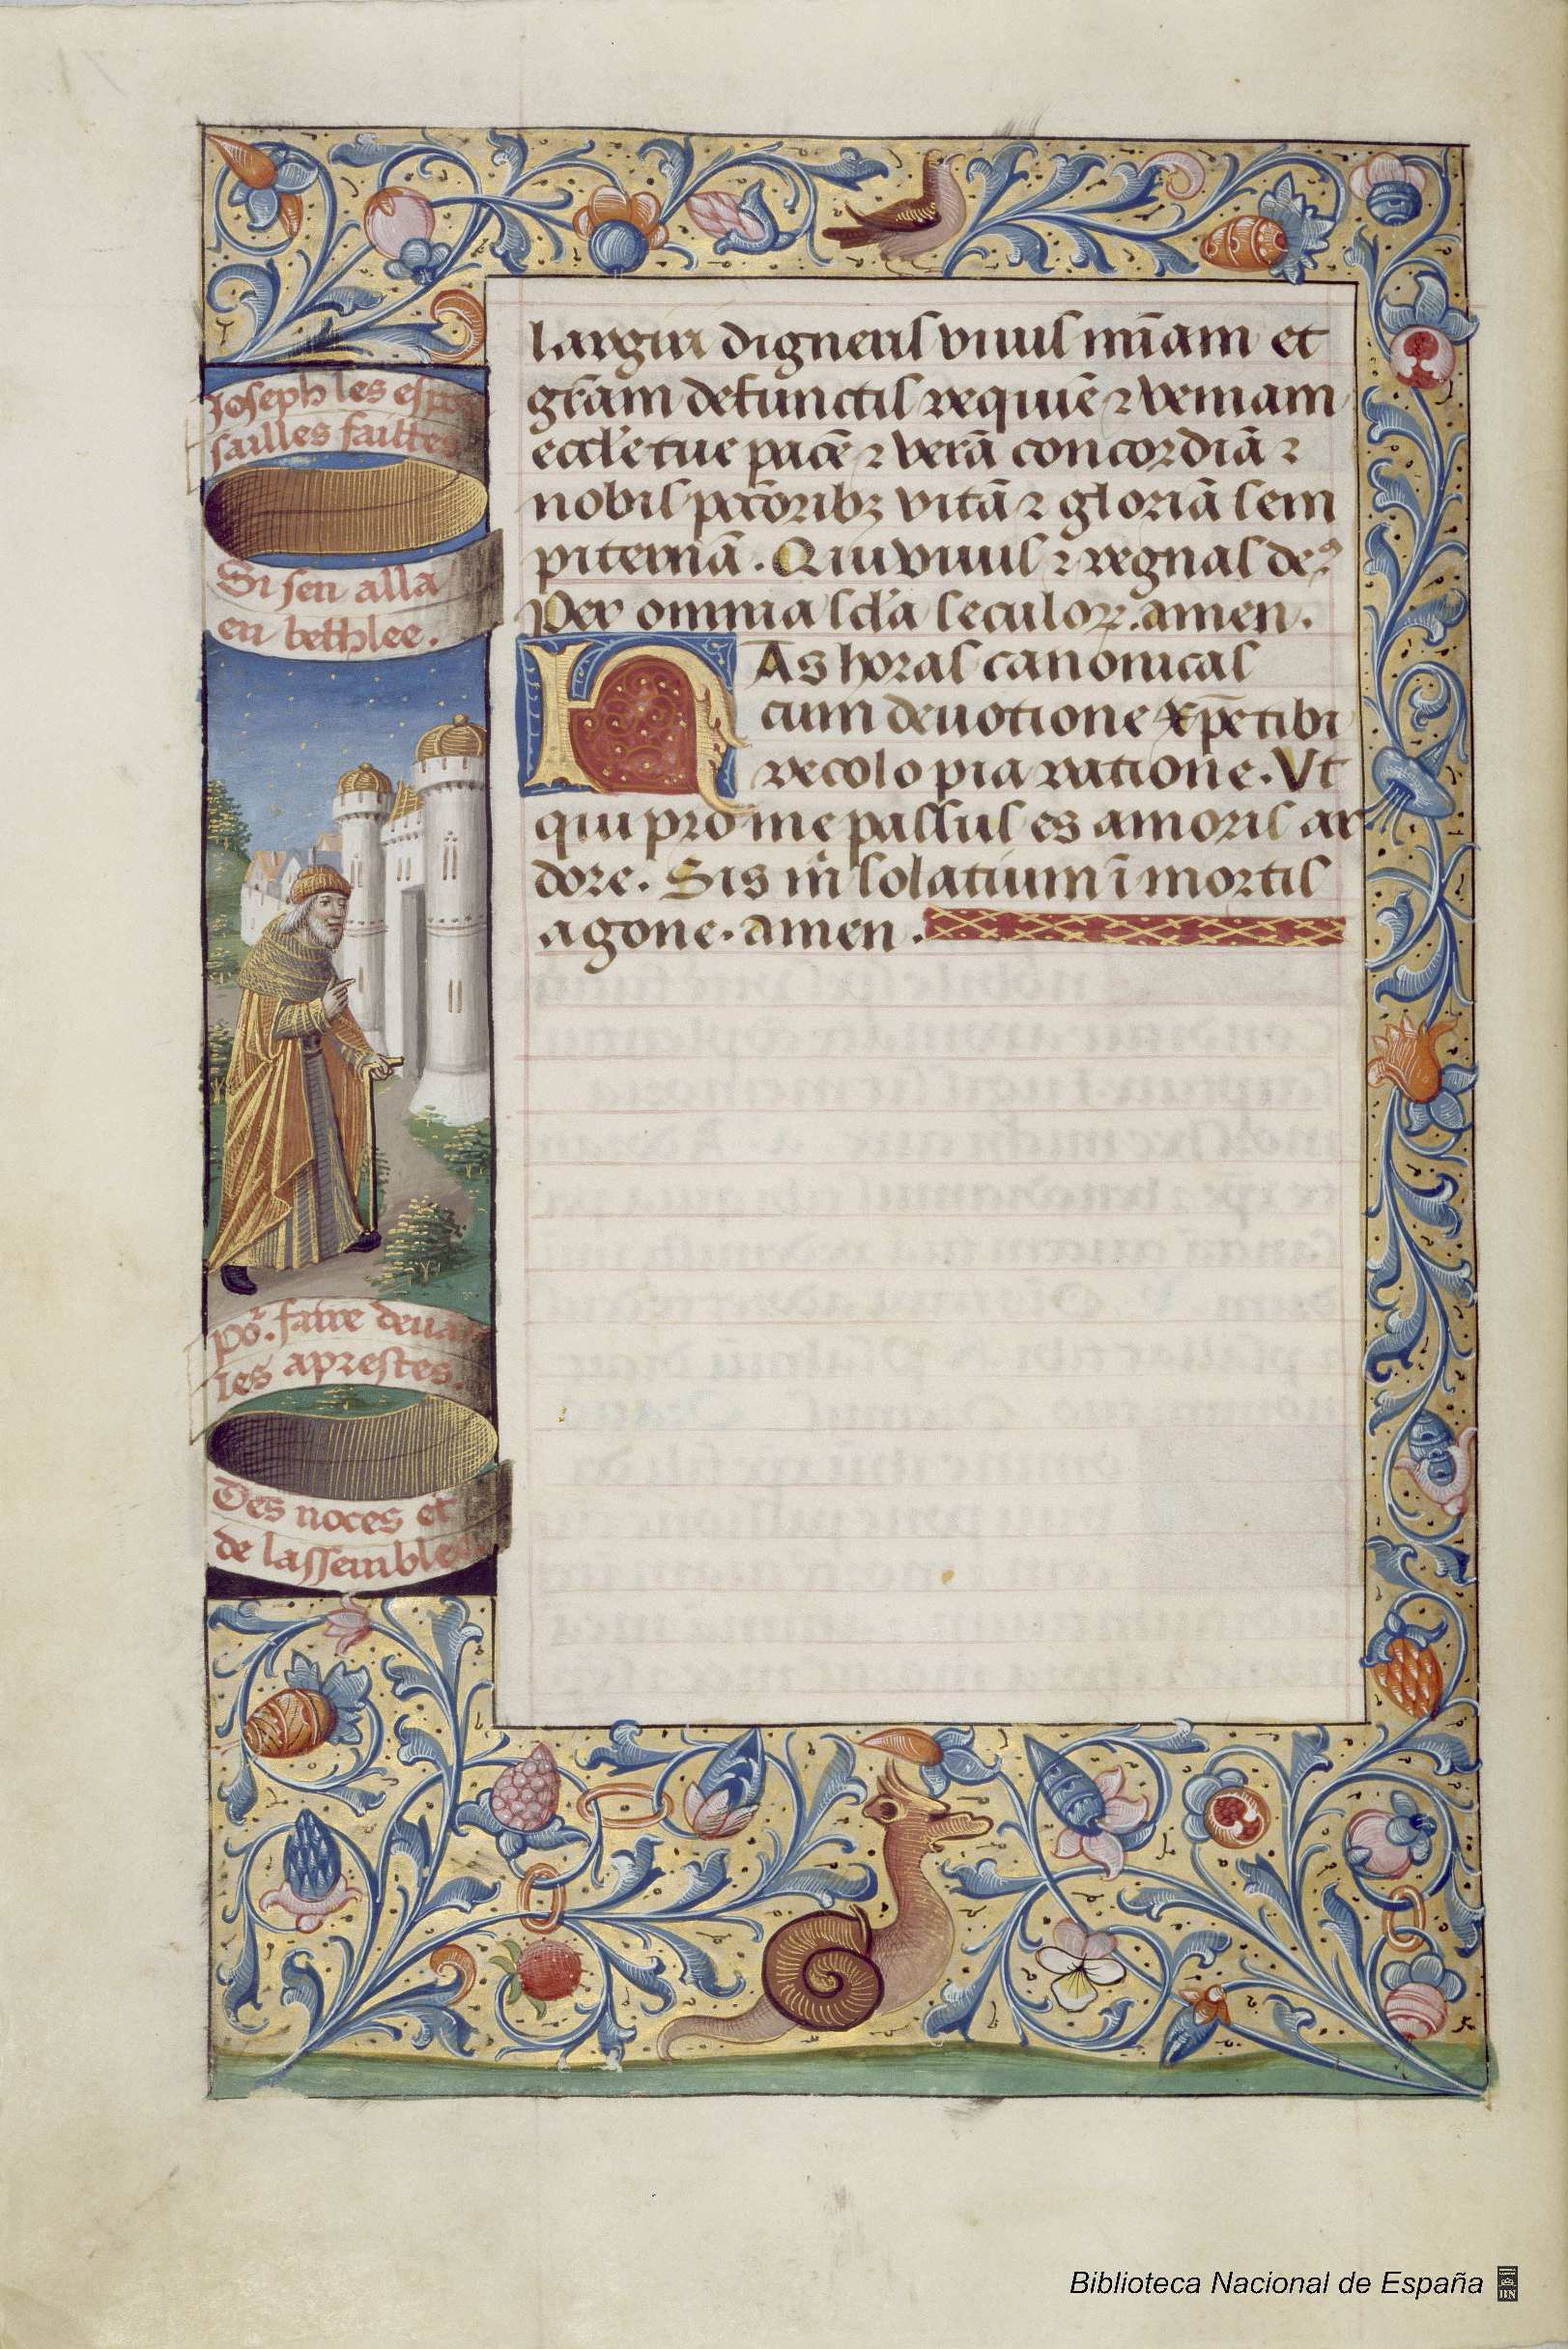 Joseph les espo
sailles faittes
Si sen alla
en bethlee.
po^r. faire deua
les aprestes.
Des noces et
de lassemblee
largiri digneris viuis miāam et
grāam defunctis requiē ⁊ veniam
eccl'e tue pacē ⁊ verā concordiā ⁊
nobis pccōribꝫ vitā ⁊ gloriā sem
piternā. Qui viuis ⁊ regnas de⁹
Per omnia scl'a seculoꝝ. amen.
HAs horas canonicas
cum deuotione xp̄e tibi
recolo pia ratione. Vt
qui pro me passus es amoris ar
dore. Sis m̄ solatium ī mortis
agone. amen.
Biblioteca Nacional de España